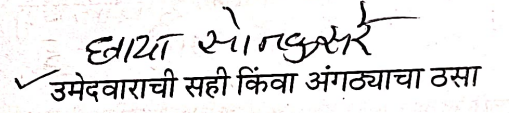 छाया सोनकुसरे
✓ उमेदवाराची सही किंवा अंगठ्याचा ठसा